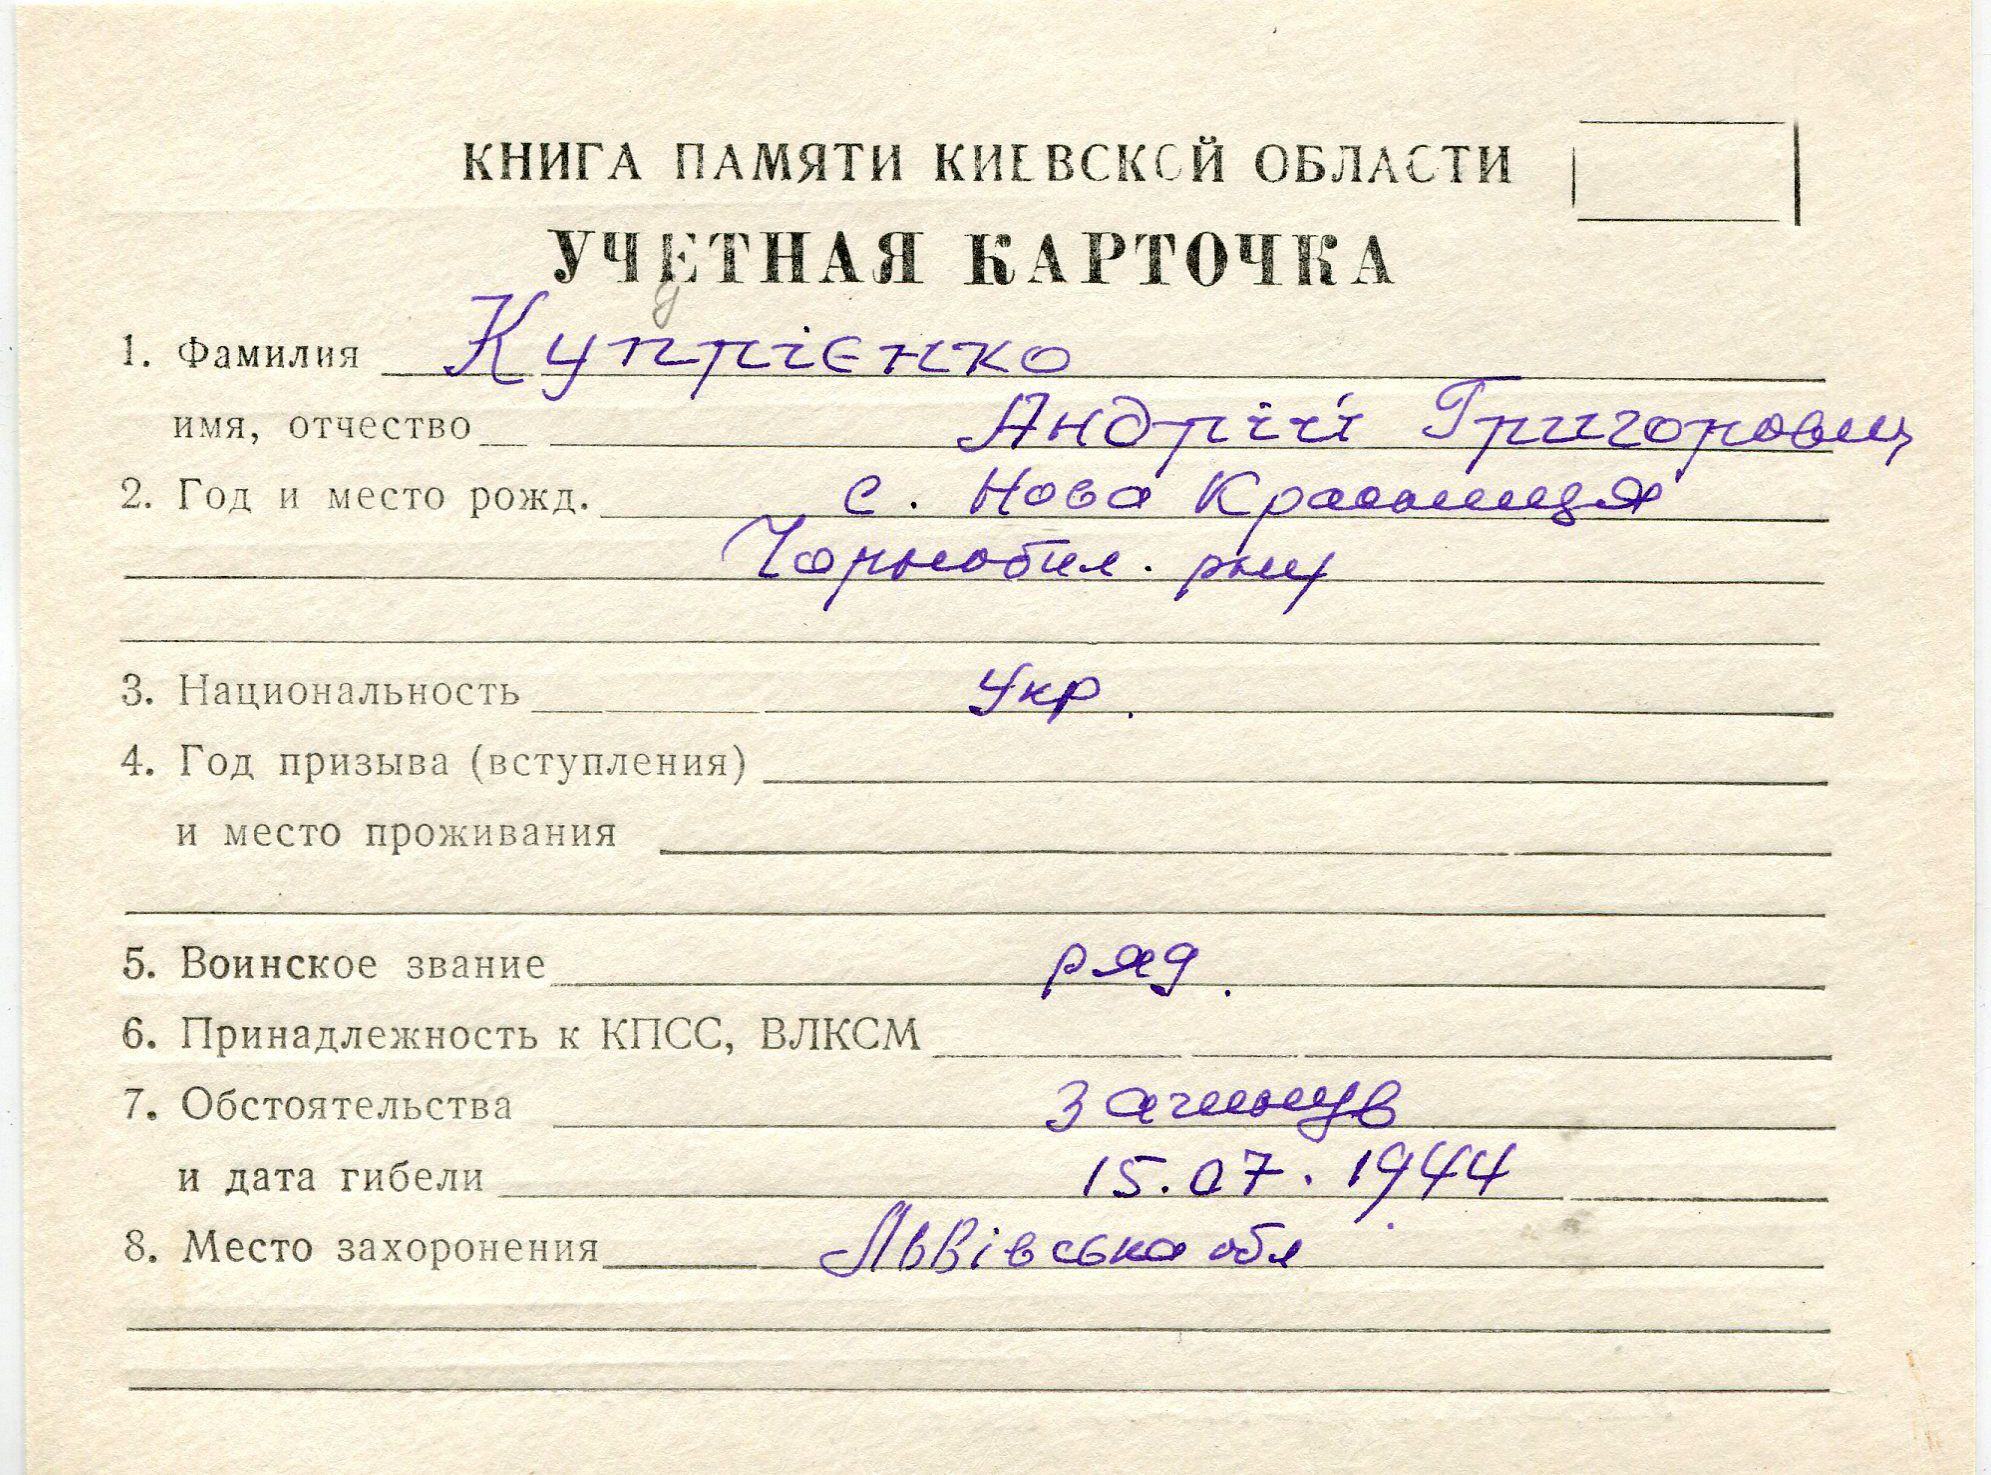 КНИГА ПАМЯТИ КИЕВСКОЙ ОБЛАСТИ
УЧЕТНАЯ КАРТОЧКА
1. Фамилия Купрієнко
имя, отчество Андрій Григорович
2. Год и место рожд. с. Нова Красниця
Чорнобил. р-ну
3. Национальность Укр.
4. Год призыва (вступления)
и место проживания
5. Воинское звание ряд.
6. Принадлежность к КПСС, ВЛКСМ
7. Обстоятельства загинув
и дата гибели 15.07.1944
8. Место захоронения Львівська обл